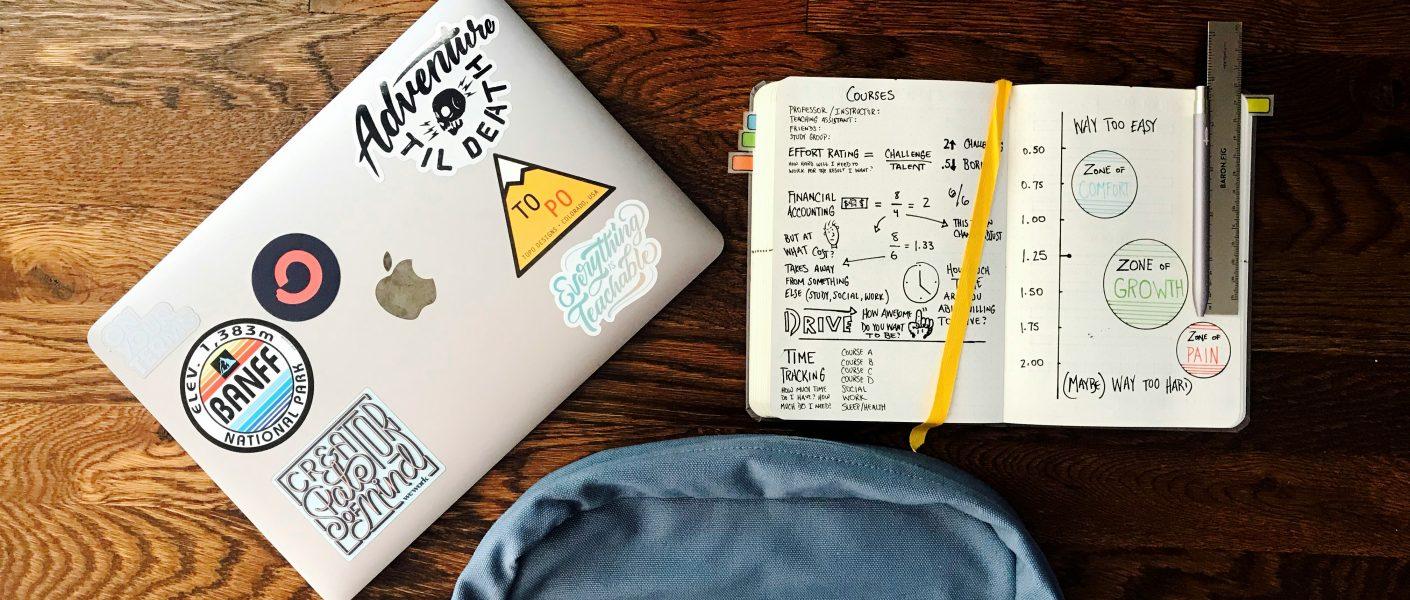 Adventure
TIL DEATH
TO
PO
TOPO DESIGNS - COLORADO, USA
Everything
is
Teachable
ELEV. 1,383m
BANFF
NATIONAL PARK
CREATOR
State
OF Mind
wework
COURSES
PROFESSOR / INSTRUCTOR:
TEACHING ASSISTANT:
FRIENDS:
STUDY GROUP:
EFFORT RATING = CHALLENGE
TALENT
HOW HARD WILL I NEED TO
WORK FOR THE RESULT I WANT?
2↑
.5↓
FINANCIAL
ACCOUNTING
= 8
4
= 2
6/6
THIS
BUT AT
WHAT COST?
8
6
= 1.33
TAKES AWAY
FROM SOMETHING
ELSE (STUDY, SOCIAL, WORK)
DRIVE
HOW AWESOME
DO YOU WANT
TO BE?
TIME
TRACKING
HOW MUCH TIME
DO I HAVE? HOW
MUCH DO I NEED?
COURSE A
COURSE B
COURSE C
COURSE D
SOCIAL
WORK
SLEEP/HEALTH
WAY TOO EASY
0.50
0.75
1.00
1.25
1.50
1.75
2.00
ZONE OF
COMFORT
ZONE OF
GROWTH
ZONE OF
PAIN
(MAYBE) WAY TOO HARD
BARON FIG